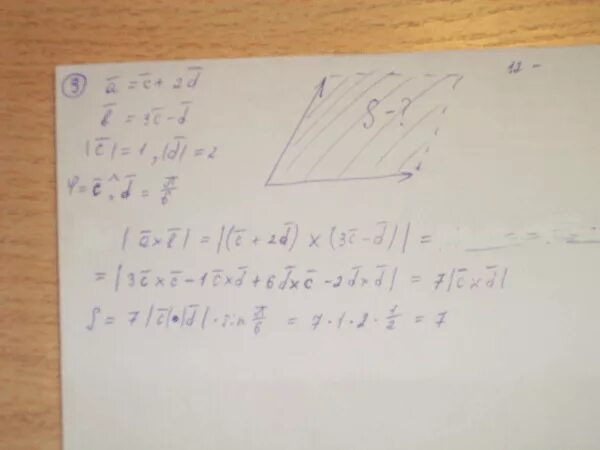 ③ a̅ = c̅ + 2d̅
b̅ = 3c̅ - d̅
|c̅| = 1, |d̅| = 2
φ = c̅ ^, d̅ = π/6
S - ?
12 -
|a̅ × b̅| = |(c̅ + 2d̅) × (3c̅ - d̅)| =
= |3c̅ × c̅ - 1c̅ × d̅ + 6d̅ × c̅ - 2d̅ × d̅| = 7|c̅ × d̅|
S = 7|c̅|·|d̅| · sin π/6 = 7 · 1 · 2 · 1/2 = 7